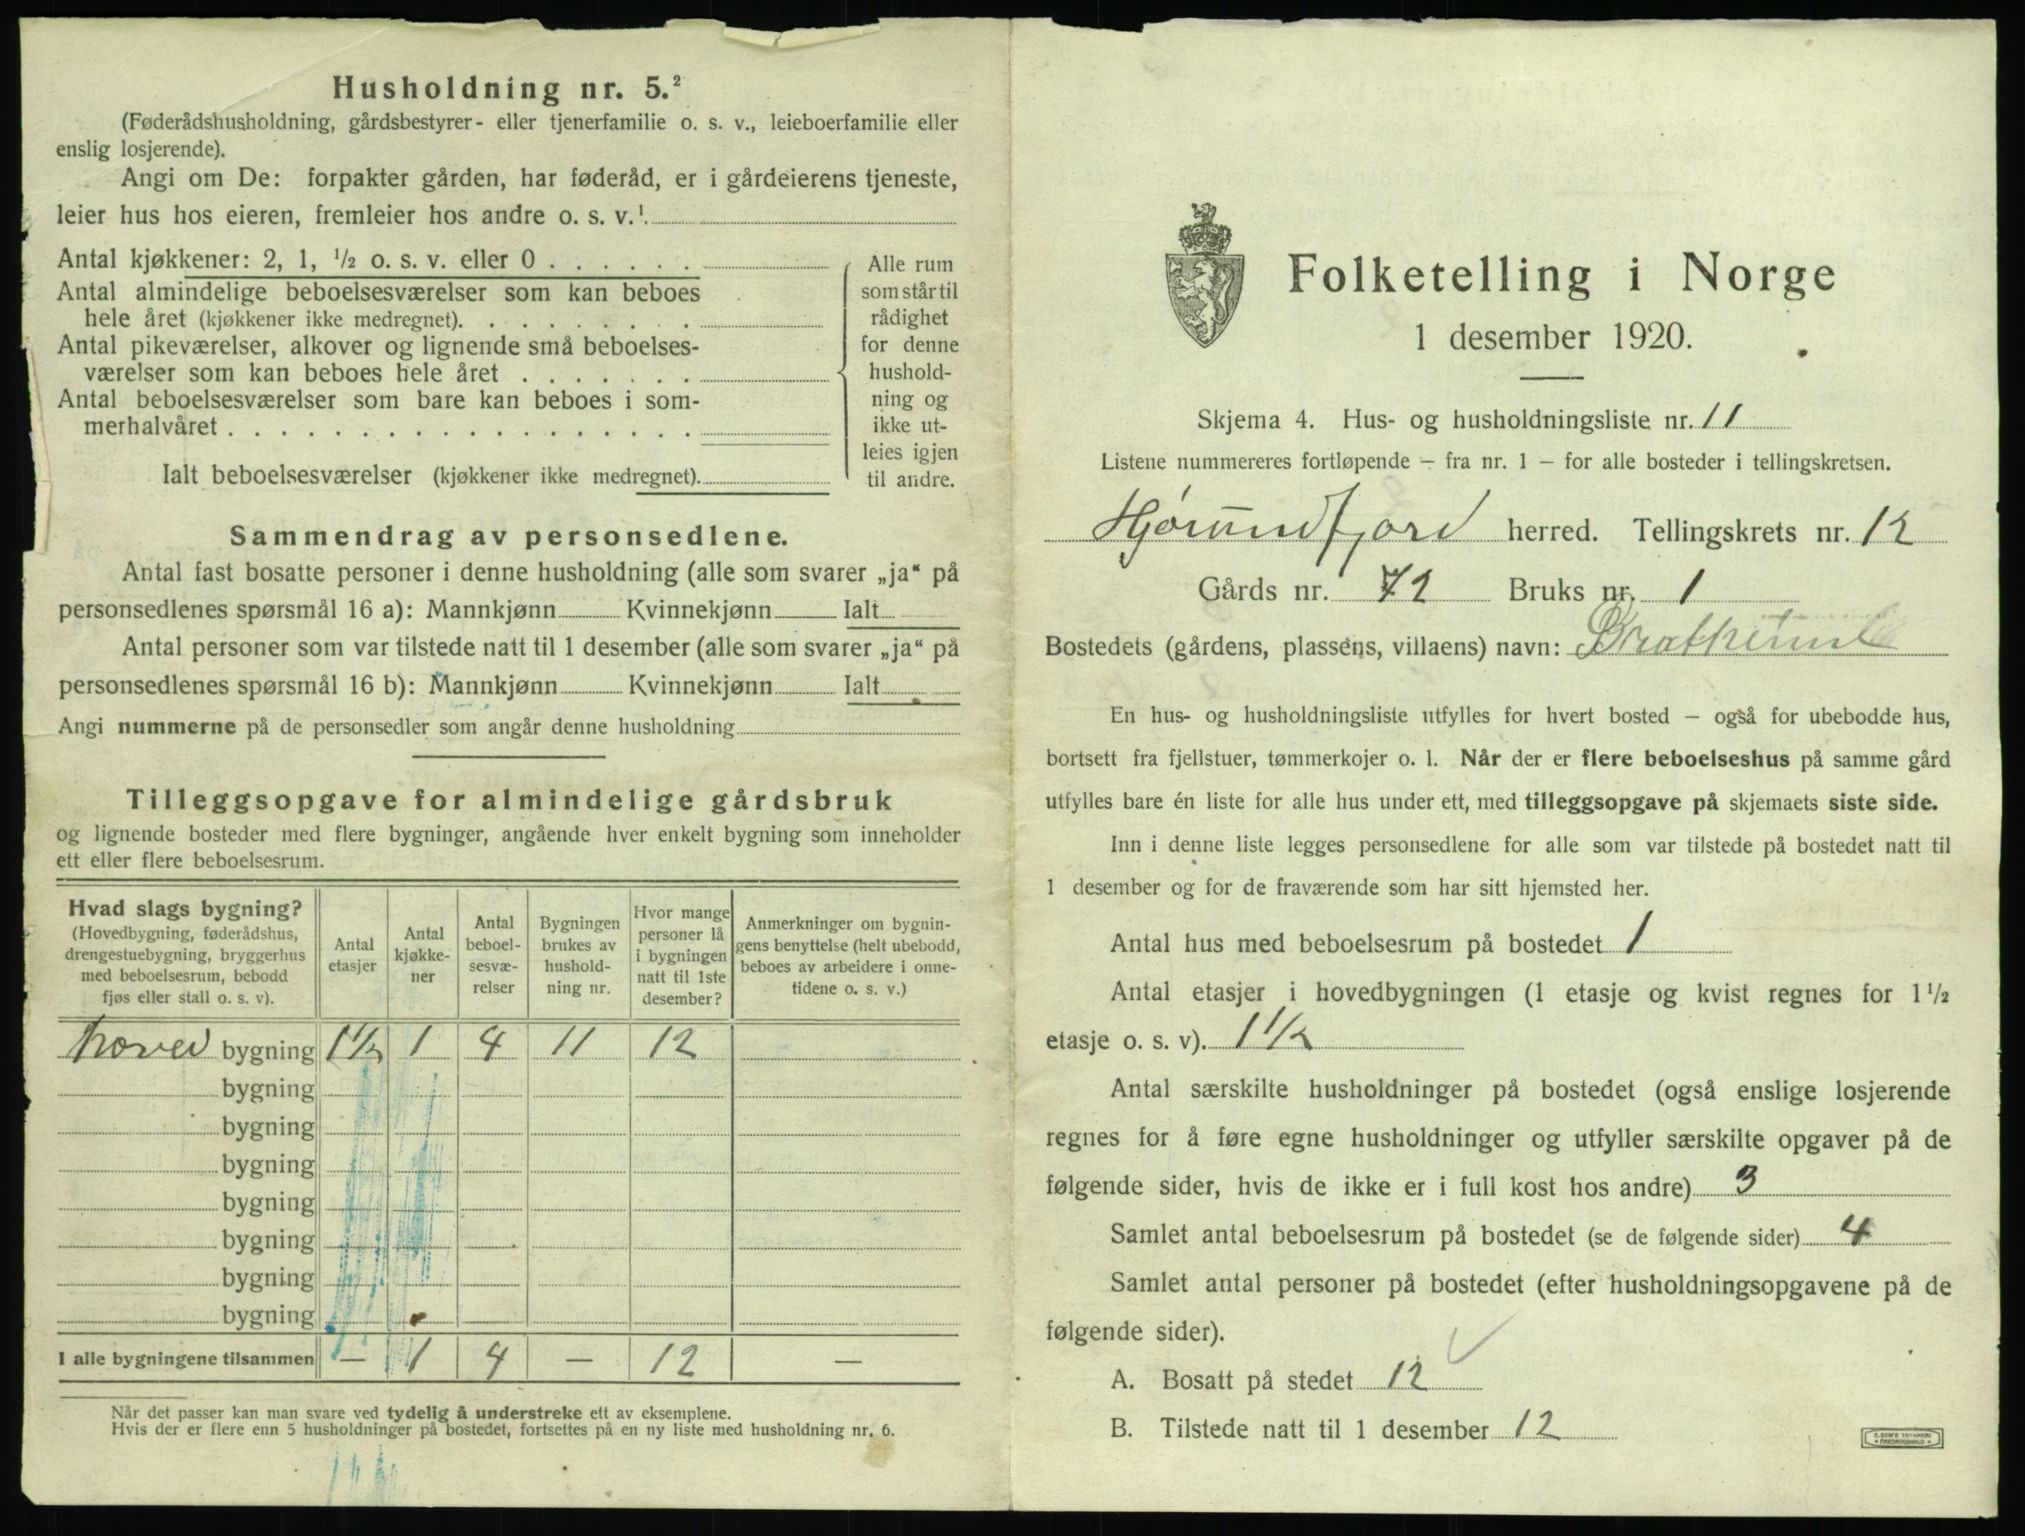 Husholdning nr. 5.²
(Føderådshusholdning, gårdsbestyrer- eller tjenerfamilie o. s. v., leieboerfamilie eller
enslig losjerende).
Angi om De: forpakter gården, har føderåd, er i gårdeierens tjeneste,
leier hus hos eieren, fremleier hos andre o. s. v.¹
Antal kjøkkener: 2, 1, ½ o. s. v. eller 0 . . . . . .
Antal almindelige beboelsesværelser som kan beboes
hele året (kjøkkener ikke medregnet). . . . . . . . .
Antal pikeværelser, alkover og lignende små beboelses-
værelser som kan beboes hele året . . . . . . .
Antal beboelsesværelser som bare kan beboes i som-
merhalvåret . . . . . . . . . . . . . . . . . .
Ialt beboelsesværelser (kjøkkener ikke medregnet).
Alle rum
som står til
rådighet
for denne
hushold-
ning og
ikke ut-
leies igjen
til andre.
Sammendrag av personsedlene.
Antal fast bosatte personer i denne husholdning (alle som svarer „ja“ på
personsedlenes spørsmål 16 a): Mannkjønn Kvinnekjønn Ialt
Antal personer som var tilstede natt til 1 desember (alle som svarer „ja“ på
personsedlenes spørsmål 16 b): Mannkjønn Kvinnekjønn Ialt
Angi nummerne på de personsedler som angår denne husholdning
Tilleggsopgave for almindelige gårdsbruk
og lignende bosteder med flere bygninger, angående hver enkelt bygning som inneholder
ett eller flere beboelsesrum.
Hvad slags bygning?
(Hovedbygning, føderådshus,
drengestuebygning, bryggerhus
med beboelsesrum, bebodd
fjøs eller stall o. s. v).
Antal
etasjer
Antal
kjøkke-
ner
Antal
beboel-
sesvæ-
relser
Bygningen
brukes av
hushold-
ning nr.
Hvor mange
personer lå
i bygningen
natt til 1ste
desember?
Anmerkninger om bygnin-
gens benyttelse (helt ubebodd,
beboes av arbeidere i onne-
tidene o. s. v.)
hoved bygning 1½ 1 4 11 12
bygning
bygning
bygning
bygning
bygning
bygning
bygning
I alle bygningene tilsammen — 1 4 — 12 —
Når det passer kan man svare ved tydelig å understreke ett av eksemplene.
Hvis der er flere enn 5 husholdninger på bostedet, fortsettes på en ny liste med husholdning nr. 6.
Folketelling i Norge
1 desember 1920.
Skjema 4. Hus- og husholdningsliste nr. 11
Listene nummereres fortløpende — fra nr. 1 — for alle bosteder i tellingskretsen.
Hjørundfjord herred. Tellingskrets nr. 12
Gårds nr. 72 Bruks nr. 1
Bostedets (gårdens, plassens, villaens) navn:
En hus- og husholdningsliste utfylles for hvert bosted — også for ubebodde hus,
bortsett fra fjellstuer, tømmerkojer o. l. Når der er flere beboelseshus på samme gård
utfylles bare én liste for alle hus under ett, med tilleggsopgave på skjemaets siste side.
Inn i denne liste legges personsedlene for alle som var tilstede på bostedet natt til
1 desember og for de fraværende som har sitt hjemsted her.
Antal hus med beboelsesrum på bostedet 1
Antal etasjer i hovedbygningen (1 etasje og kvist regnes for 1½
etasje o. s. v). 1½
Antal særskilte husholdninger på bostedet (også enslige losjerende
regnes for å føre egne husholdninger og utfyller særskilte opgaver på de
følgende sider, hvis de ikke er i full kost hos andre) 3
Samlet antal beboelsesrum på bostedet (se de følgende sider) 4
Samlet antal personer på bostedet (efter husholdningsopgavene på de
følgende sider).
A. Bosatt på stedet 12
B. Tilstede natt til 1 desember 12